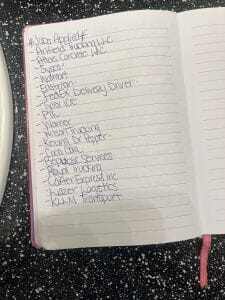 * Jobs Applied
- Anfield Trucking LLC
- Atlas Concrete LLC
- Sysco
- Walmart
- Eastman
- FedEx Delivery Driver
- Tyler Ice
- Werner
- Wilson Trucking
- Keurig Dr. Pepper
- Coca Cola
- Republic Services
- Trucking
- Carter Express Inc
- Kazer Logistics
- KLLM Transport